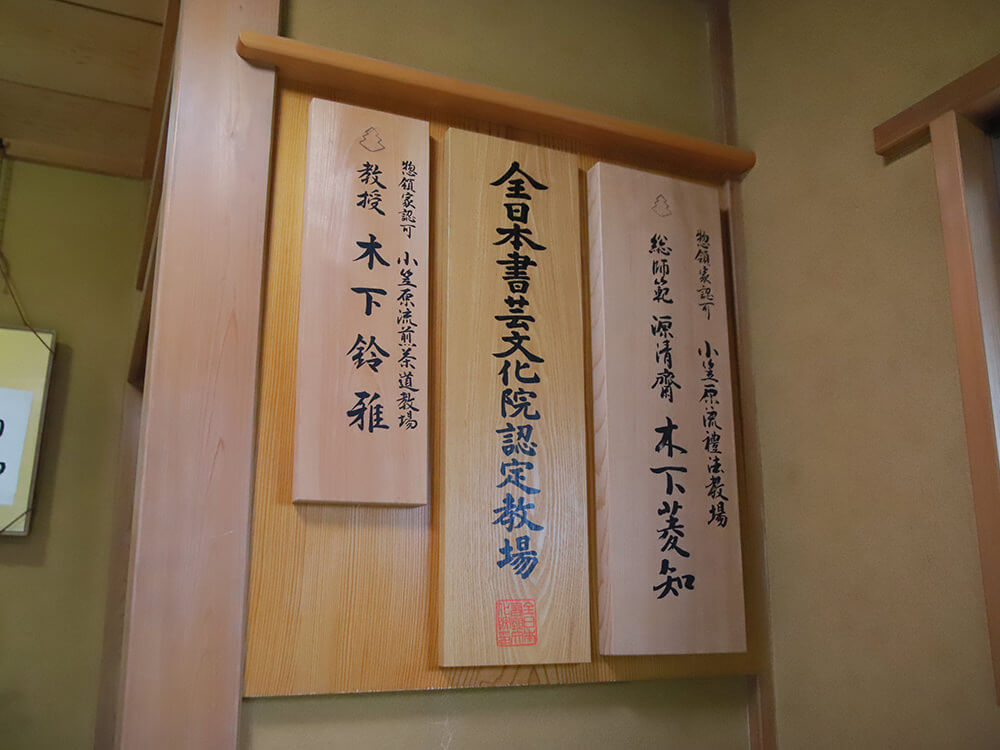 惣領家認可 小笠原流禮法教場
総師範 源清齋 木下菱知
全日本書芸文化院認定教場
惣領家認可 小笠原流煎茶道教場
教授 木下鈴雅